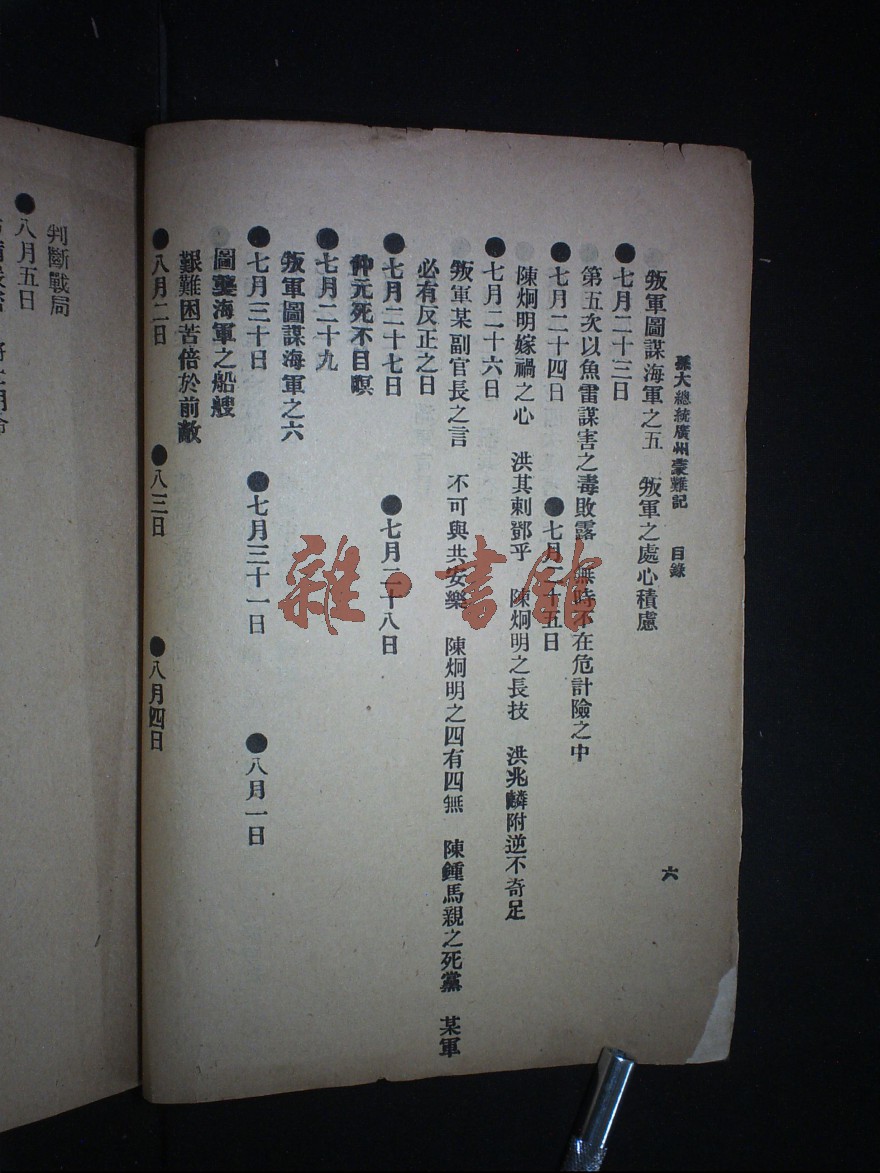 孫大總統廣州蒙難記 目錄 六
叛軍圖謀海軍之五 叛軍之處心積慮
●七月二十三日
第五次以魚雷謀害之毒敗露 無時不在危計險之中
●七月二十四日 ●七月二十五日
陳炯明嫁禍之心 洪其刺鄧乎 陳炯明之長技 洪兆麟附逆不奇足
●七月二十六日
叛軍某副官長之言 不可與共安樂 陳炯明之四有四無 陳鍾馬親之死黨 某軍
必有反正之日
●七月二十七日 ●七月二十八日
仲元死不目瞑
●七月二十九
叛軍圖謀海軍之六
●七月三十日 ●七月三十一日 ●八月一日
圖擊海軍之船艘
艱難困苦倍於前敵
●八月二日 ●八三日 ●八月四日
判斷戰局
●八月五日
雜·書館